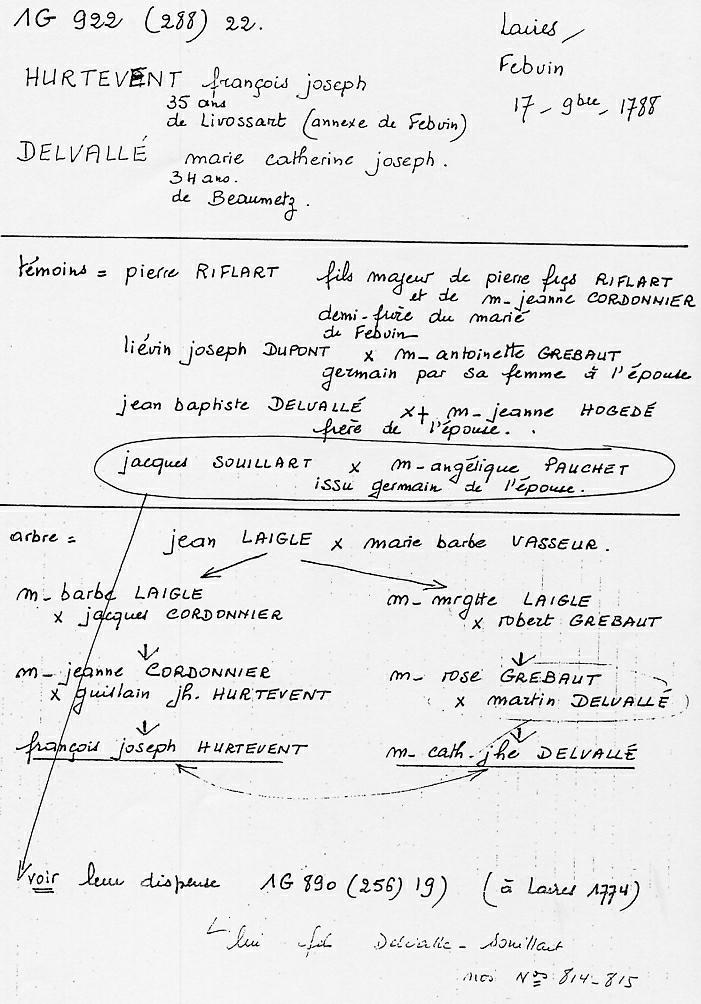 1G 922 (288) 22.
Laires /
Febvin
17 - 9bre - 1788
HURTEVENT françois joseph
35 ans
de Livossart (annexe de Febvin)
DELVALLÉ marie catherine joseph.
34 ans.
de Beaumetz.
témoins = pierre RIFLART fils majeur de pierre frçs RIFLART
et de m- jeanne CORDONNIER
demi-frère du marié
de Febvin
liévin joseph DUPONT x m- antoinette GREBAUT
germain par sa femme à l'épouse
jean baptiste DELVALLÉ x+ m- jeanne HOGEDÉ
frère de l'épouse.
jacques SOUILLART x m-angélique PAUCHET
issu germain de l'épouse.
arbre = jean LAIGLE x marie barbe VASSEUR.
m- barbe LAIGLE
x jacques CORDONNIER
m- mrgtte LAIGLE
x robert GREBAUT
m- jeanne CORDONNIER
x guislain jh. HURTEVENT
m- rose GREBAUT
x martin DELVALLÉ
françois joseph HURTEVENT
m- cath. jhe DELVALLÉ
voir leur dispense 1G 890 (256) 19) (à Laires 1774)
lui Delvalle - Souillart
nos Nos 814-815